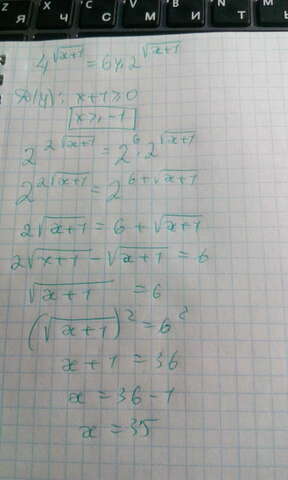 C Ч В М И Т
4^√(x+1) = 64·2^√(x+1)
D(y): x+1≥0
x≥-1
2^(2√(x+1)) = 2^6·2^√(x+1)
2^(2√(x+1)) = 2^(6+√(x+1))
2√(x+1) = 6+√(x+1)
2√(x+1) - √(x+1) = 6
√(x+1) = 6
(√(x+1))² = 6²
x+1 = 36
x = 36-1
x = 35